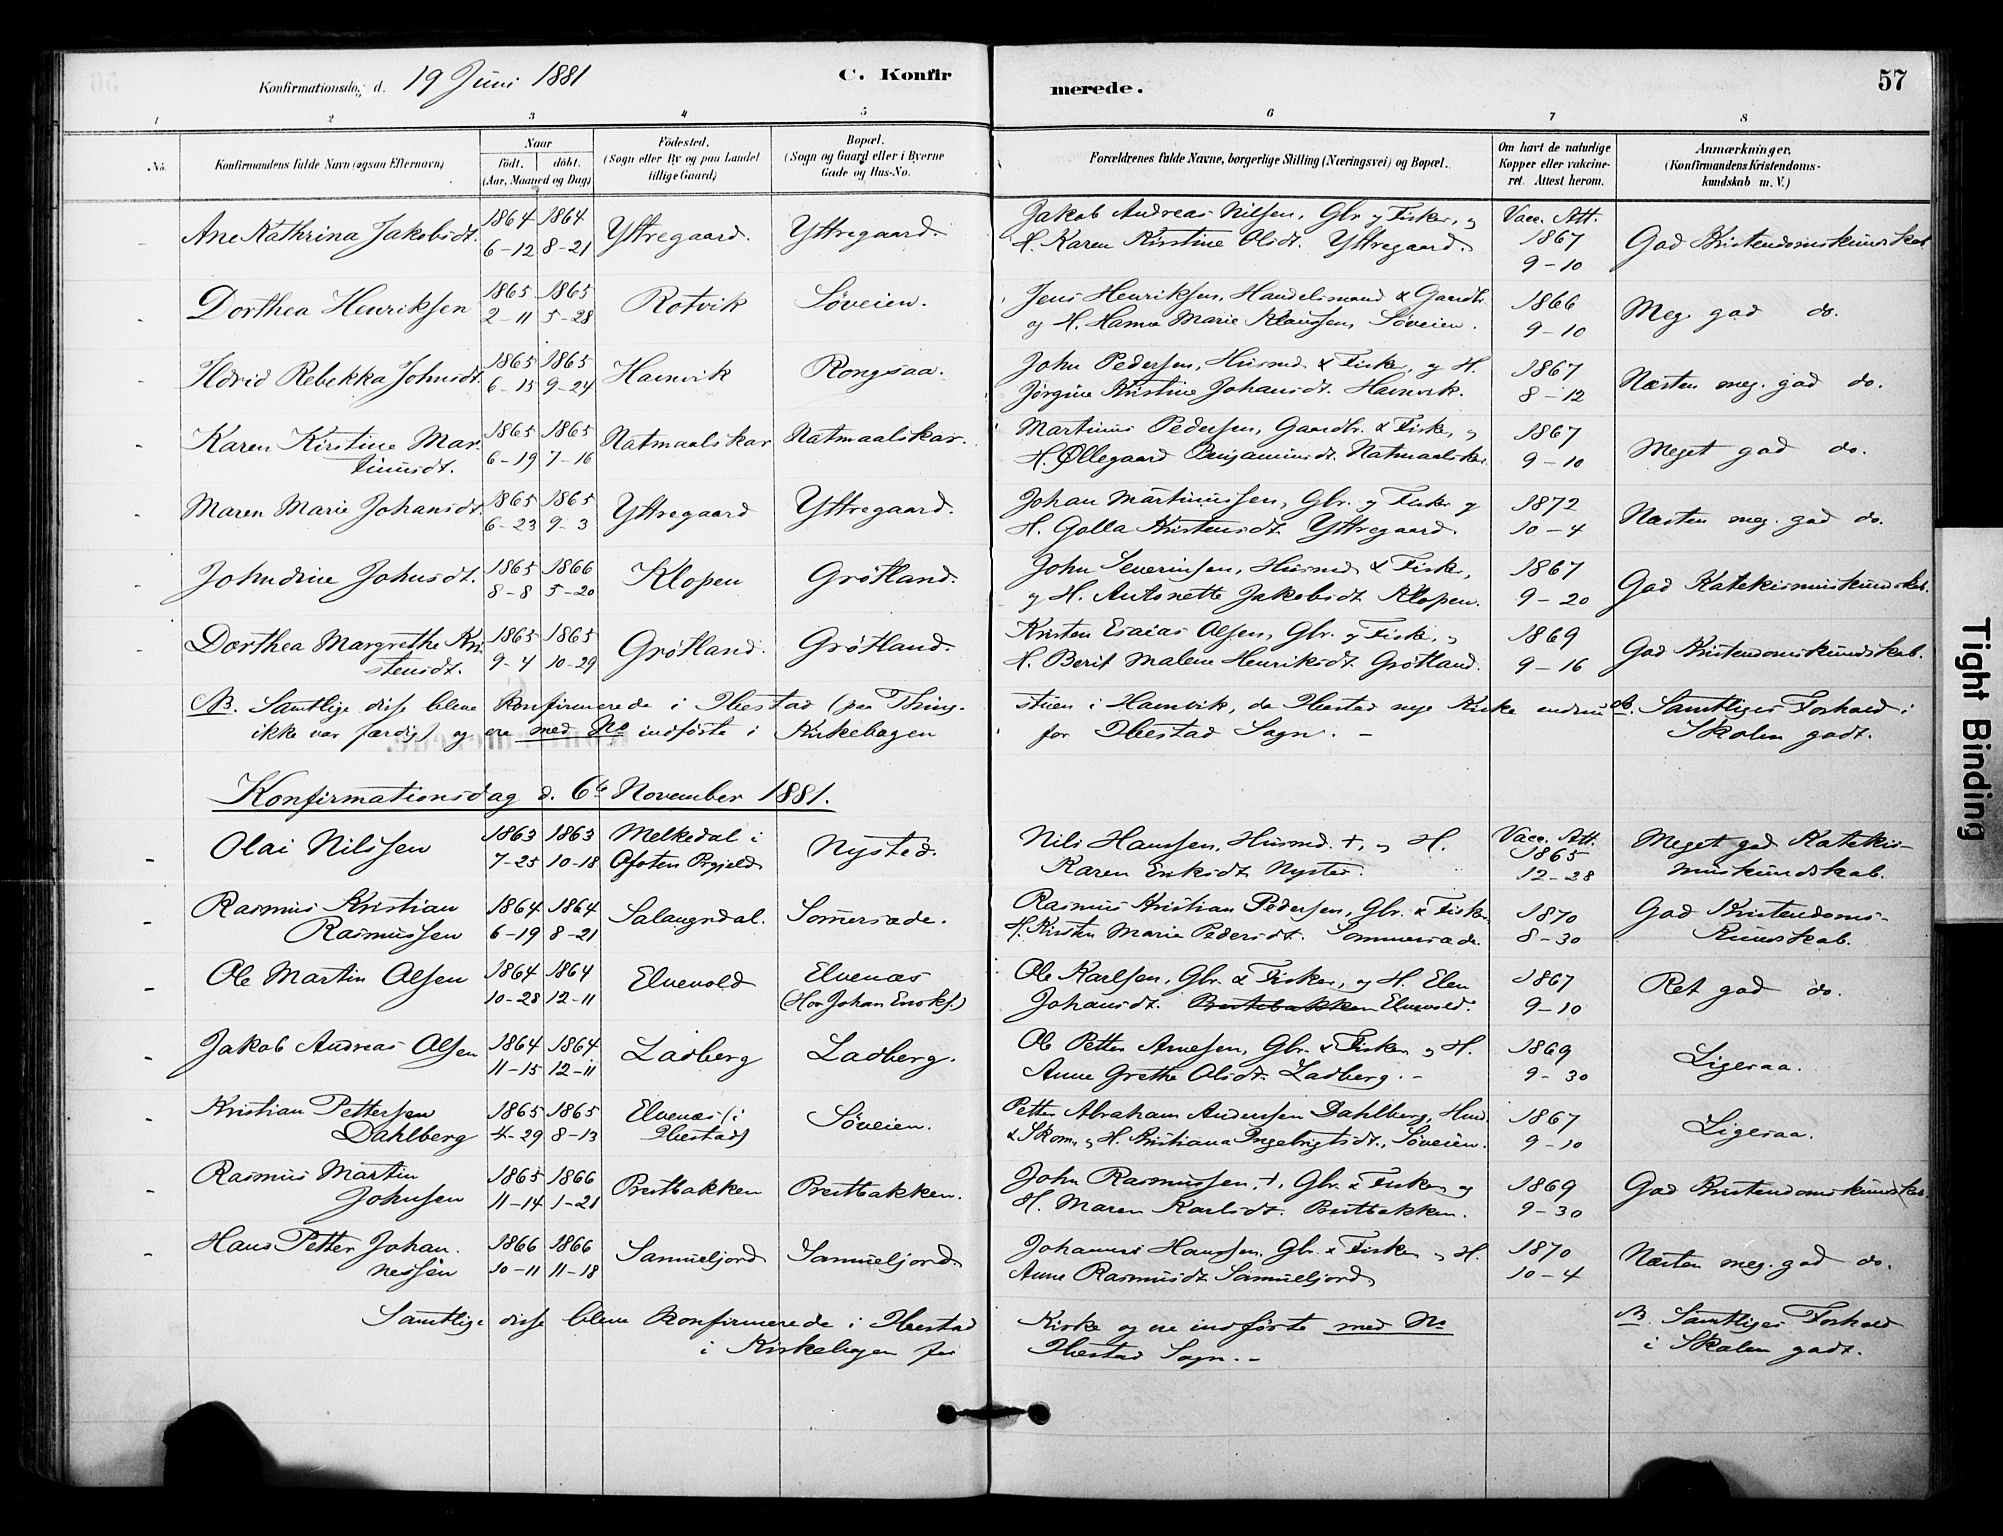 Konfirmationsdag d. 19 Juni 1881 C. Konfirmerede. 57
1 2 3 4 5 6 7 8
No. Konfirmandens fulde Navn (ogsaa Efternavn) Naar födt. döbt. (Aar, Maaned og Dag) Födested. (Sogn eller By og paa Landet tillige Gaard) Bopæl. (Sogn og Gaard eller i Byerne Gade og Hus-No. Forældrenes fulde Navne, borgerlige Stilling (Næringsvei) og Bopæl. Om havt de naturlige Kopper eller vakcineret. Attest herom. Anmærkninger, (Konfirmandens Kristendomskundskab m. V.)
- Ane Kathrina Jakobsdt. 1864 6-12 1864 8-21 Yttregaard. Yttregaard. Jakob Andreas Nilsen, Gbr. og Fisker, og
H. Karen Kirstine Olsdt. Yttregaard. Vacc. Att. 1867 9-10 God Kristendomskundskab
- Dorthea Henriksen 1865 2-11 1865 5-28 Rotvik Søveien. Jens Henriksen, Handelsmand & Gaardb.
og H. Hanna Marie Klaussen, Søveien. 1866 9-10 Meg. god do.
- Ildrid Rebekka Johnsdt. 1865 6-15 1865 9-24 Hamvik Rongsaa. John Pedersen, Husmd & Fisker, og H.
Jørgine Kristine Johansdt. Hamvik. 1867 8-12 Næsten meg. god do.
- Karen Kirstine Mar-
tinusdt. 1865 6-19 1865 7-16 Natmaalskar Natmaalskar. Martinus Pedersen, Gaardb. & Fisker, og
H. Øllegaard Benjaminsdt. Natmaalskar. 1867 9-10 Meget god do.
- Maren Marie Johansdt. 1865 6-23 1865 9-3 Yttregaard Yttregaard. Johan Martinussen, Gbr. og Fisker og
H. Golla Kristensdt. Yttregaard. 1872 10-4 Næsten meg. god do.
- Johndine Johnsdt. 1865 8-8 1866 5-20 Klopen Grötland. John Severinsen, Husmd & Fisker,
og H. Antonette Jakobsdt. Klopen. 1867 9-20 God Katekismuskundskab.
- Dorthea Margrethe Kri-
stensdt. 1865 9-4 1865 10-29 Grötland. Grötland. Kristen Esaias Olsen, Gbr. og Fisker, og
H. Berit Malene Henriksdt. Grötland. 1869 9-16 God Kristendomskundskab.
NB. Samtlige disse bleve konfirmerede i Ibestad (paa Thing- stuen i Hamvik, da Ibestad nye Kirke endnu NB. Samtliges Forhold i
ikke var færdig) og ere med No indførte i Kirkebogen for Ibestad Sogn. - Skolen godt.
Konfirmationsdag d. 6te November 1881.
- Olai Nilssen 1863 7-25 1863 10-18 Melkedal i
Ofoten Prgjeld Nysted. Nils Hanssen, Husmd. +, og H.
Karen Eriksdt. Nysted. Vacc. Att. 1865 12-28 Meget god Katekis-
muskundskab.
- Rasmus Kristian
Rasmussen 1864 6-19 1864 8-21 Salangsdal. Somersæde. Rasmus Kristian Pedersen, Gbr. & Fisker
H. Kirsten Marie Pedersdt. Sommersæde. 1870 8-30 God Kristendoms-
kundskab.
- Ole Martin Olsen 1864 10-28 1864 12-11 Elvevold Elvenæs
(Hos Johan Enoks.) Ole Karlsen, Gbr. & Fisker, og H. Elen
Johansdt. Prestebakken Elvevold. 1867 9-10 Ret god do.
- Jakob Andreas Olsen 1864 11-15 1864 12-11 Ladberg Ladberg. Ole Petter Arnesen, Gbr. & Fisker og H.
Anne Grethe Olsdt. Ladberg. - 1869 9-30 Ligesaa.
- Kristian Pettersen
Dahlberg 1865 4-29 1865 8-13 Elvenæs (i
Ibestad) Søveien. Petter Abraham Anderssen Dahlberg, Husd.
& Skom., og H. Kristiana Ingebrigtsdt., Søveien. 1867 9-10 Ligesaa.
- Rasmus Martin
Johnsen 1865 11-14 1866 1-21 Prestbakken Prestbakken. John Rasmussen, +, Gbr. & Fisker og
H. Maren Karlsdt. Prestbakken. 1869 9-30 God Kristendomskundskab
- Hans Petter Johan-
nessen 1866 10-11 1866 11-18 Samueljord Samueljord Johannes Hanssen. Gbr. & Fisker og H.
Anne Rasmusdt. Samueljord, 1870 10-4 Næsten meg. god do.
Samtlige disse bleve konfirmerede i Ibestad Kirke og ere indførte med No NB. Samtliges Forhold
i Kirkebogen for Ibestad Sogn. - i Skolen godt.
Tight Binding